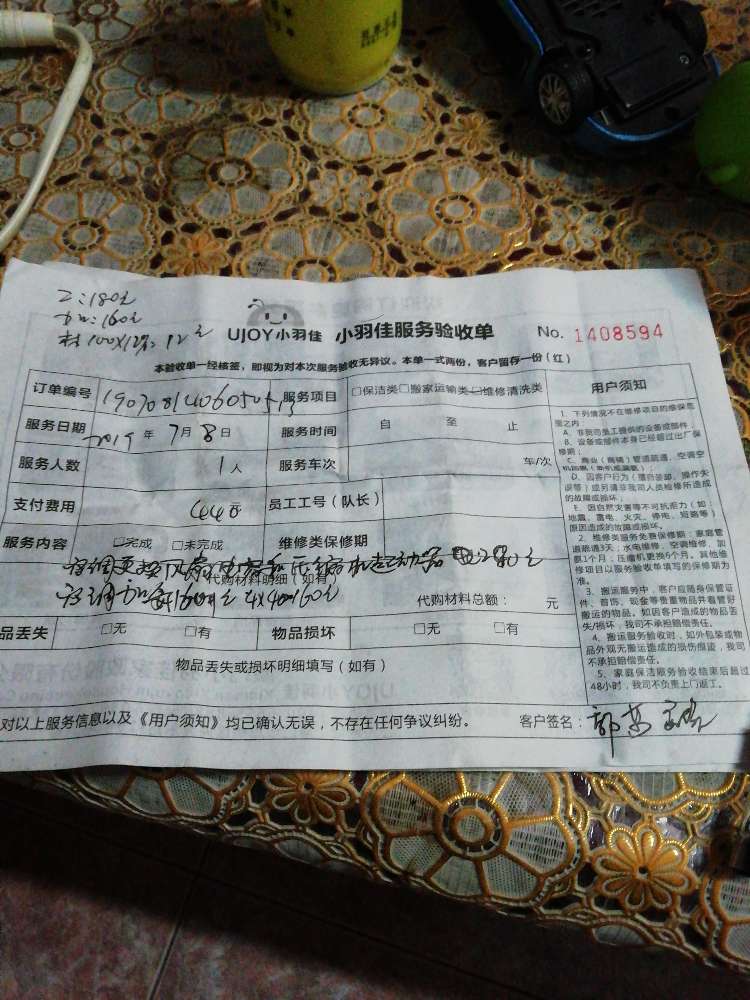 工:180元
加:160元
材100X12%:12元
UJOY小羽佳 小羽佳服务验收单 No. 1408594
本验收单一经核签,即视为对本次服务验收无异议。本单一式两份,客户留存一份(红)
订单编号 服务项目 □保洁类□搬家运输类□维修清洗类
服务日期 2019年7月8日 服务时间 自 至 止
服务人数 1人 服务车次 车/次
支付费用 440元 员工工号(队长)
服务内容 □完成 □未完成 维修类保修期
空调更换风扇电容和压缩机起动器 280元
代购材料明细(如有)
空调加 4X40=160元
代购材料总额: 元
品丢失 □无 □有 物品损坏 □无 □有
物品丢失或损坏明细填写(如有)
对以上服务信息以及《用户须知》均已确认无误,不存在任何争议纠纷。 客户签名:
用户须知
1、下列情况不在维修项目的维保范
围之内:
A、非我司员工提供的设备或部件;
B、设备或部件本身已经超过出厂保
修期;
C、商业(商铺)管道疏通,空调空
D、因客户行为(擅自装卸、操作失
误等)或另请非我司人员检修所造成
的故障或损坏;
E、因自然灾害等不可抗拒力(如:
地震、雷电、火灾、停电、短路等)
原因造成的故障或损坏。
2、维修类服务免费保修期:家庭管
道疏通3天;水电维修、空调维修、加
氨1个月;压缩机更换6个月。其他维
修项目以服务验收单填写的保修期为
准。
3、搬运服务中,客户应随身保管证
件、首饰、现金等贵重物品并看管好
搬运的物品。如因客户造成的物品丢
失/损坏,我司不承担赔偿责任。
4、搬运服务验收时,如外包装或物
品外观无搬运造成的损伤痕迹,我司
不承担赔偿责任。
5、家庭保洁服务验收结束后超过
48小时,我司不负责上门返工。